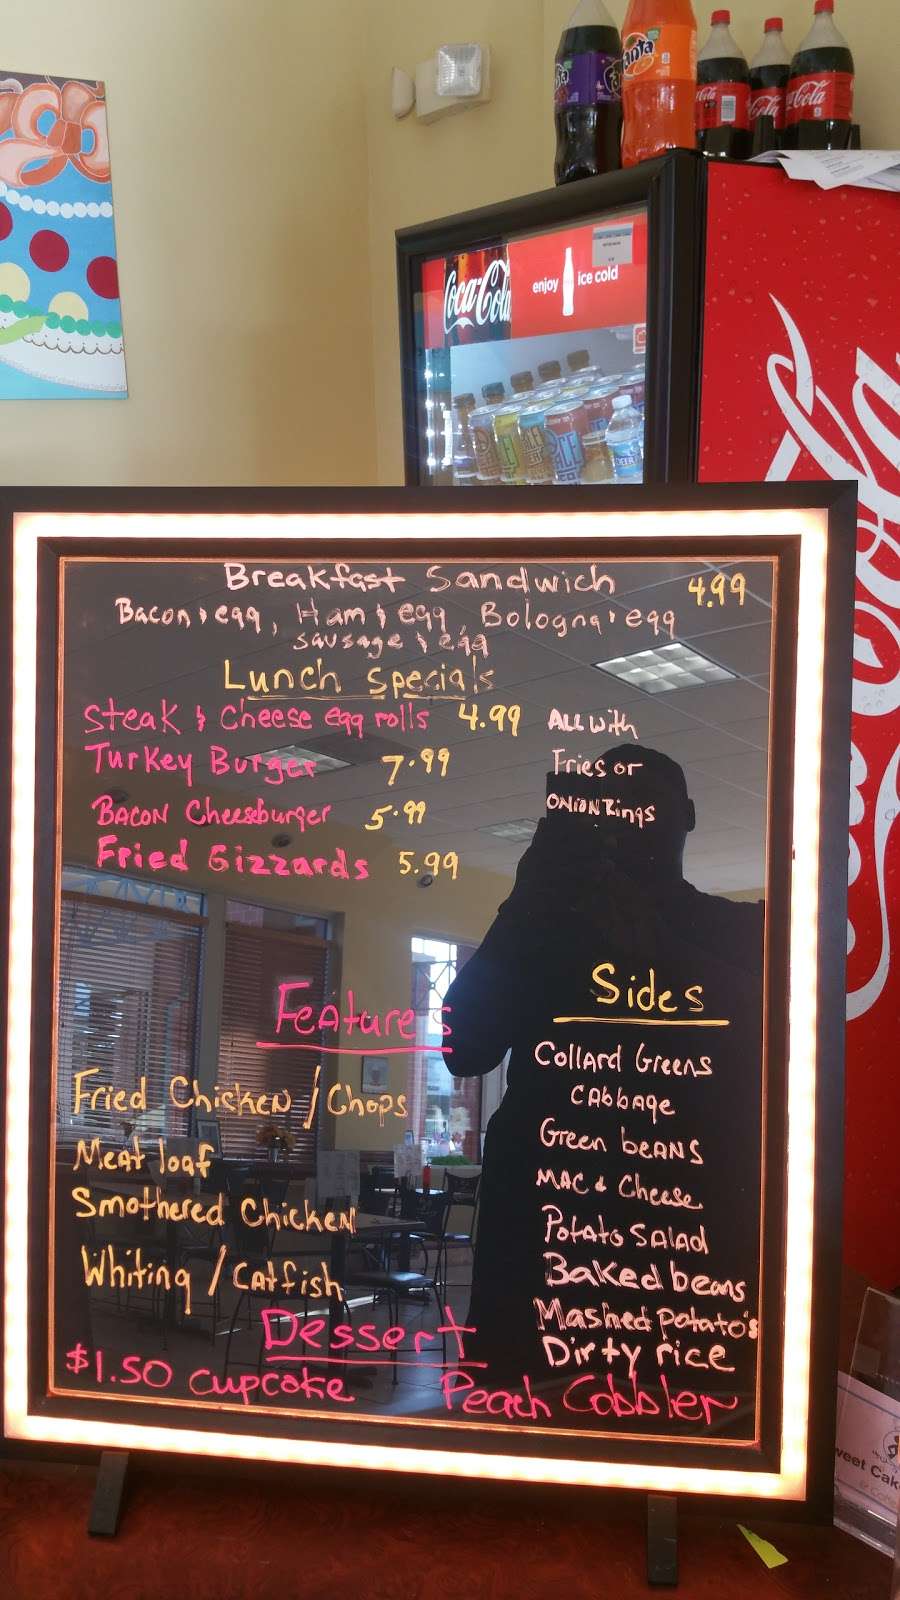 Fanta
Fanta
Coca-Cola
Coca-Cola
Coca-Cola
enjoy ice cold
Breakfast Sandwich 4.99
Bacon & egg, Ham & egg, Bologna & egg
sausage & egg
Lunch Specials
Steak & Cheese egg rolls 4.99 All with
Turkey Burger 7.99 Fries or
Bacon Cheesburger 5.99 Onion Rings
Fried Gizzards 5.99
Features
Fried Chicken / Chops
Meat loaf
Smothered Chicken
Whiting / Catfish
Sides
Collard Greens
Cabbage
Green beans
Mac & Cheese
Potato Salad
Baked beans
Mashed potato's
Dirty rice
Dessert
$1.50 cupcake Peach Cobbler